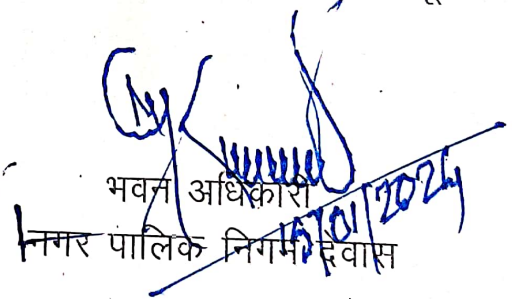 भवन अधिकारी
नगर पालिक निगम देवास
15/01/2024